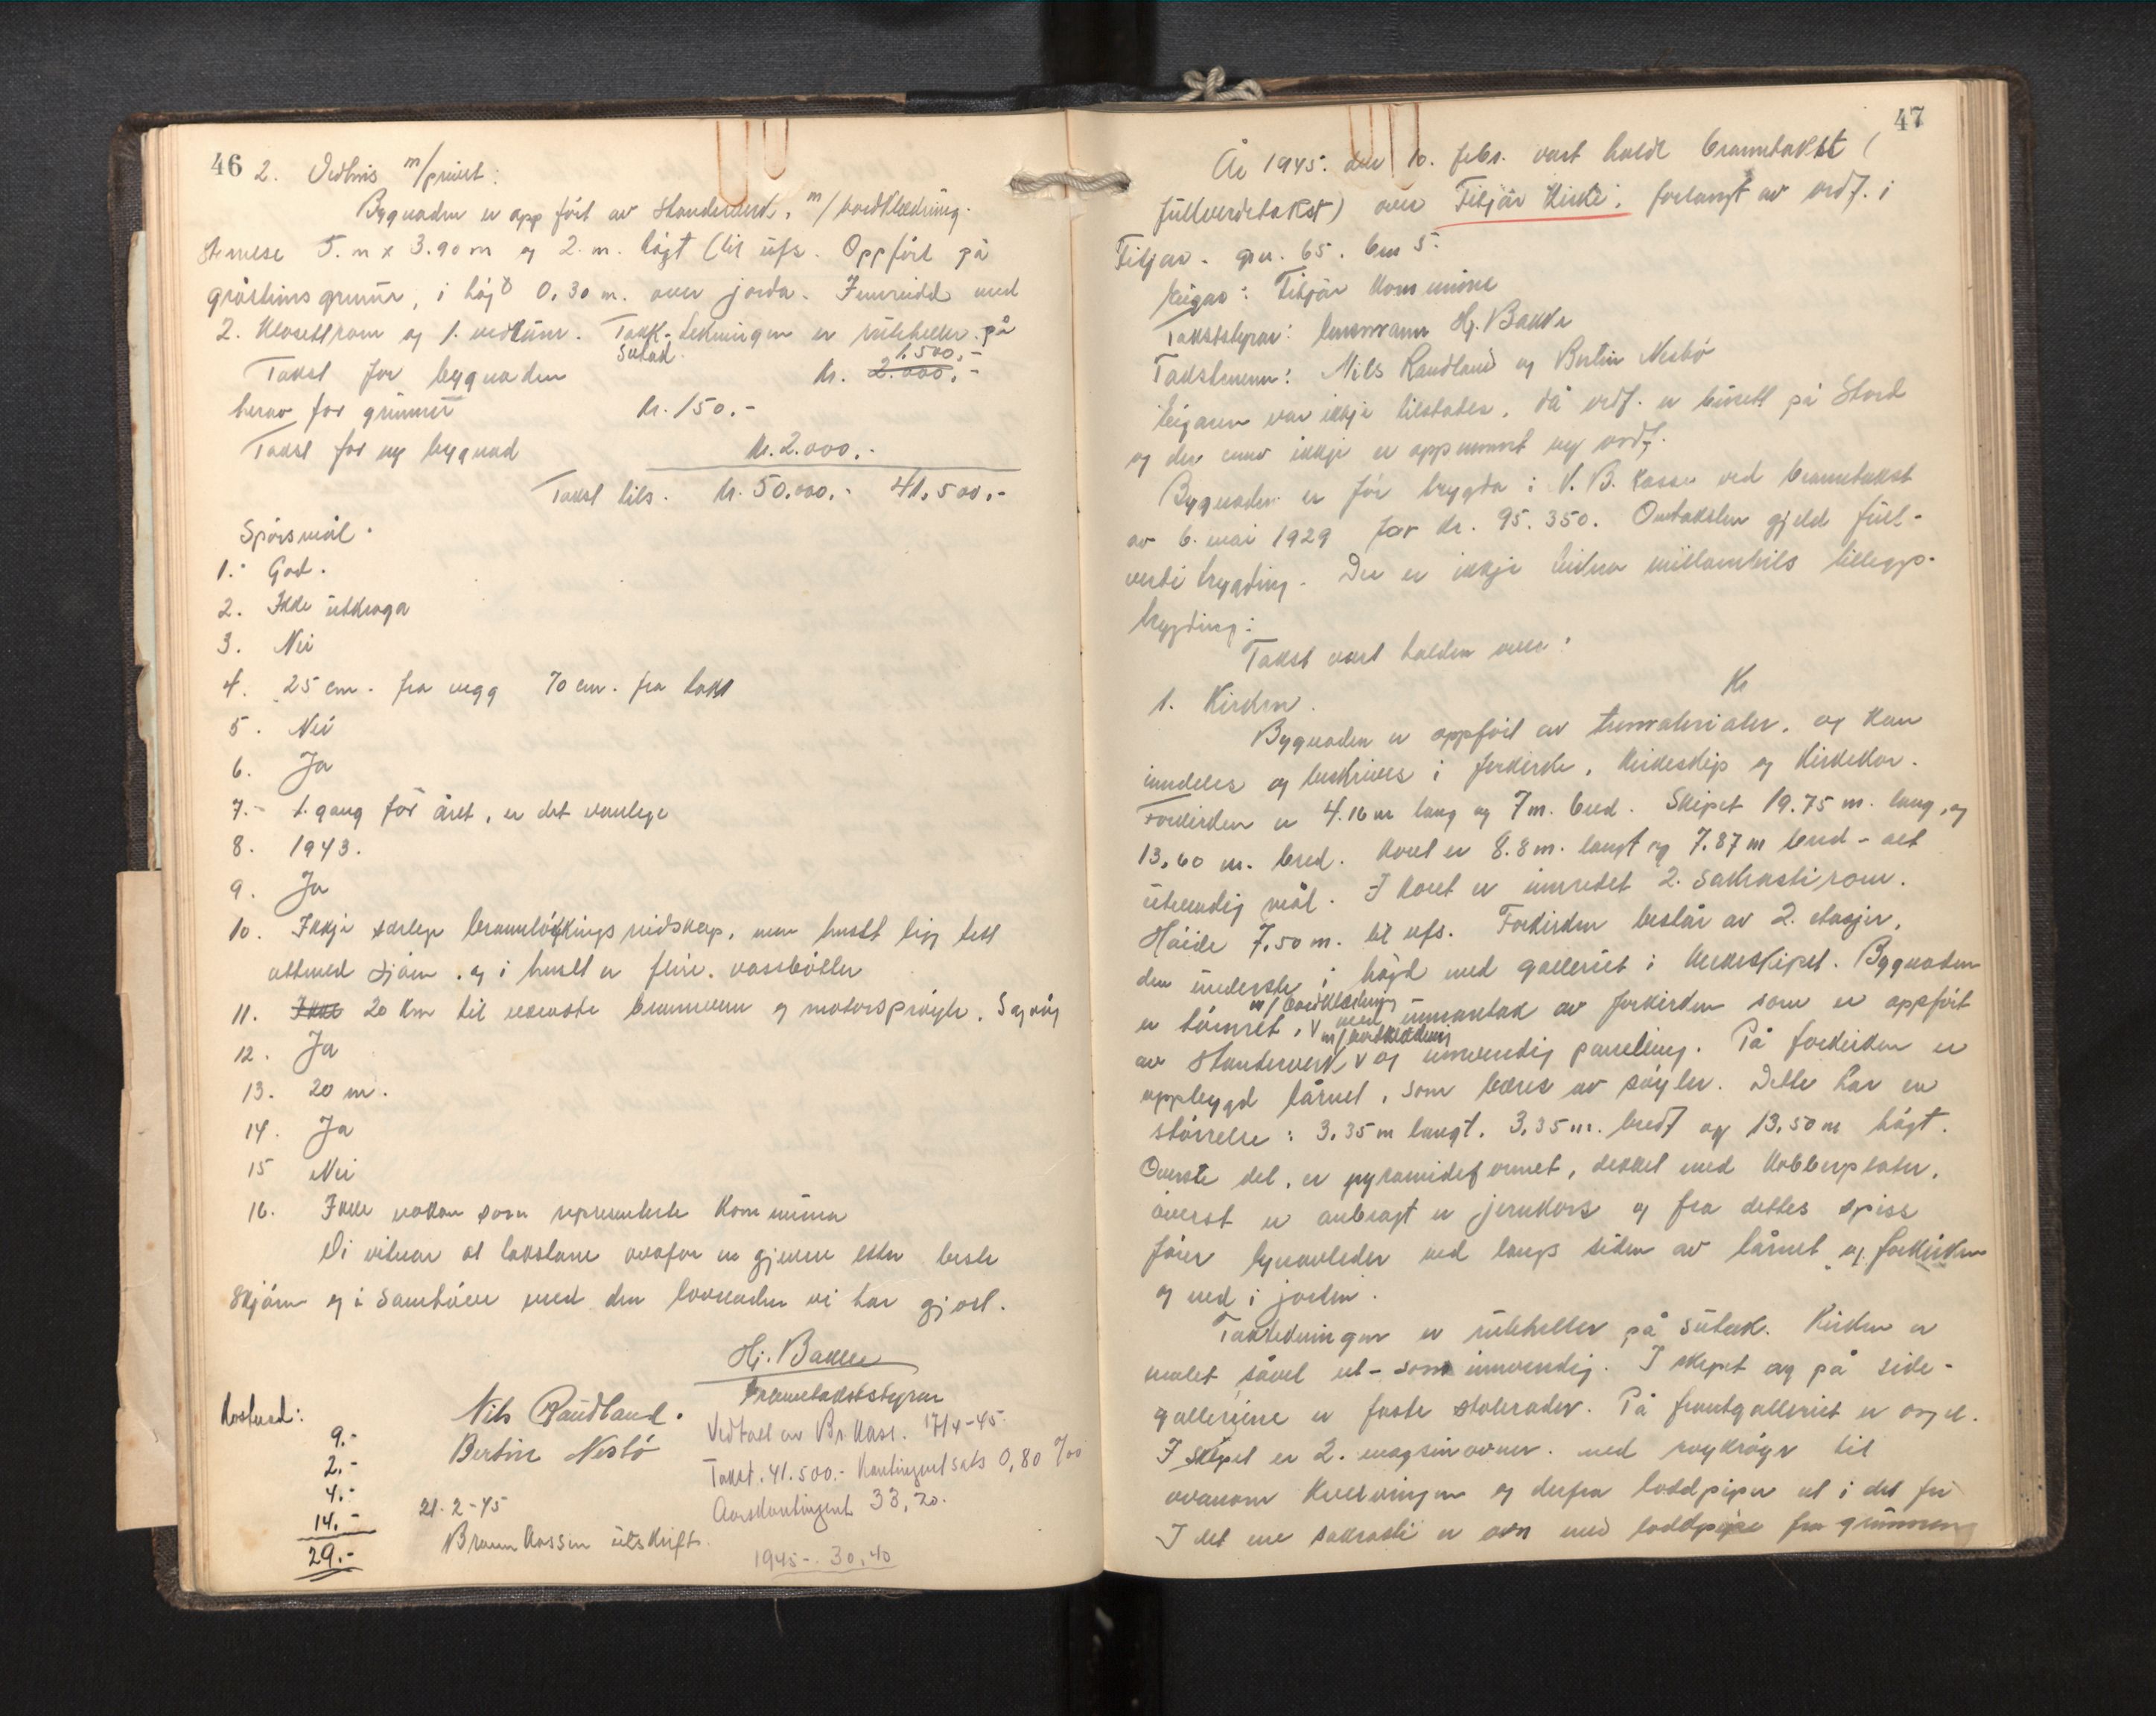 46
2. Vedhus m/privet:
Bygnaden er oppfört av standerverk, m/bordklædning.
Störrelse 5. m x 3.90 m og 2. m. högt (til ufs. Oppfört på
gråsteinsgrunn, i högd 0,30 m. over jorda. Innreidd med
2. klosettrom og 1. vedrum. Takk-tekningen er ruteheller på
sutak. 1.500,-
Takst for bygnaden kr. 2.000,-
herav for grunnur kr. 150.-
Takst for ny bygnad kr. 2.000.-
Takst tils. kr. 50.000.- 41.500.-
Spörsmål.
1. God.
2. Ikke utkroga
3. Nei
4. 25 cm. fra vegg 70 cm. fra takk
5. Nei
6. Ja
7.- 1. gang för året, er det vanlege
8. 1943.
9. Ja
10. Ikkje særlege brannslökkingsreidskap, men huset ligg tett
attmed sjöen. og i huset er fleire. vassbötter
11. Ikke 20 km til næraste brannvern og motorspröyte. Sagvåg
12. Ja
13. 20 m.
14. Ja
15 Nei
16. Ikke nokon som representerte kommuna
Vi vitnar at takstane ovafor er gjevne etter beste
skjön og i samhöve med den lovnaden vi har gjort.
Hj. Bakke
branntakststyrar
Nils Raudland.
Bertin Nesbö
Kostnad:
9.-
2.-
4.-
14.-
29.-
21.-2-45
Brannkassen utskrift.
Vedtatt av Br.kass. 17/4-45.
Takst. 41.500.- Kontingentsats 0,80 %o
Aarskontingent 33,20.
1945 - 30,40
47
År 1945. den 10. febr. vart haldt branntakst (
fullverdetakst) over Fitjar kirke, forlangt av ordf. i
Fitjar. gnr. 65. bnr 5.
Eigar: Fitjar kommune
Takststyrar: lensmann Hj. Bakke
Takstmenn: Nils Raudland og Bertin Nesbö
Eigaren var ikkje tilstades, då ordf. er busett på Stord
og der enno ikkje er oppnemnt ny ordf.
Bygnaden er för trygda i N. B. kasse ved branntakst
av 6. mai 1929 for kr. 95.350. Omtaksten gjeld full-
verdi trygding. Der er ikkje teikna millombils tilleggs-
trygding:
Takst vart halden over:
Kr
1. Kirken.
Bygnaden er oppfört av trematerialer, og kan
inndeles og beskrives i forkirke, kirkeskip og kirkekor.
Forkirken er 4.16 m lang og 7 m. bred. Skipet 19.75 m. lang, og
13,60 m. bred. Koret er 8.8 m. langt og 7.87 m bred - alt
utvendig mål. I koret er innredet 2. sakrastirom.
Höide 7,50 m. til ufs. Forkirken består av 2. etasjer,
den underste i höjd med galleriet i kirkeskipet. Bygnaden
m/bordklædning
er tömret, v med unnantak av forkirken som er oppfört
m/bordklædning
av standerverk v og innvendig panelling. På forkirken er
oppbygd tårnet, som bæres av söyler. Dette har en
störrelse: 3.35 m langt. 3,35 m. bredt og 13,50 m högt.
Överste del, er pyramideformet, dekket med kobberplater,
överst er anbragt er jernkors og fra dettes spiss
förer lynavleder ned langs siden av tårnet og forkirken
og ned i jorden.
Taktekningen er rutheller på sutak. Kirken er
malet såvel ut- som innvendig. I skipet og på side-
galleriene er faste stolerader. På frontgalleriet er orgel.
I skipet er 2. magasinovner. med röykrögr til
ovanom kvelvingen og derfra loddpiper ut i det fri
I det ene sakrasti er ovn med loddpipe fra grunnen